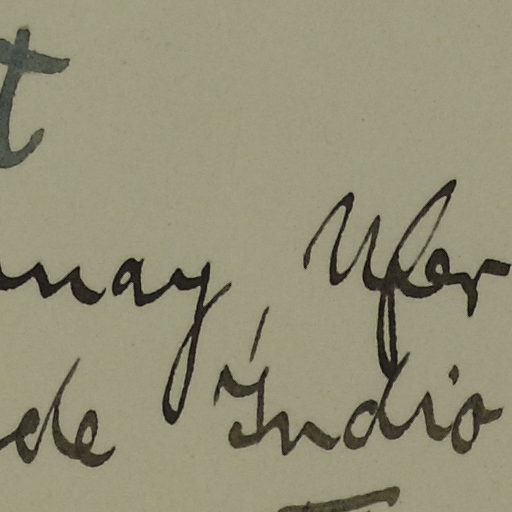 t
nay, Ufer
de Indio